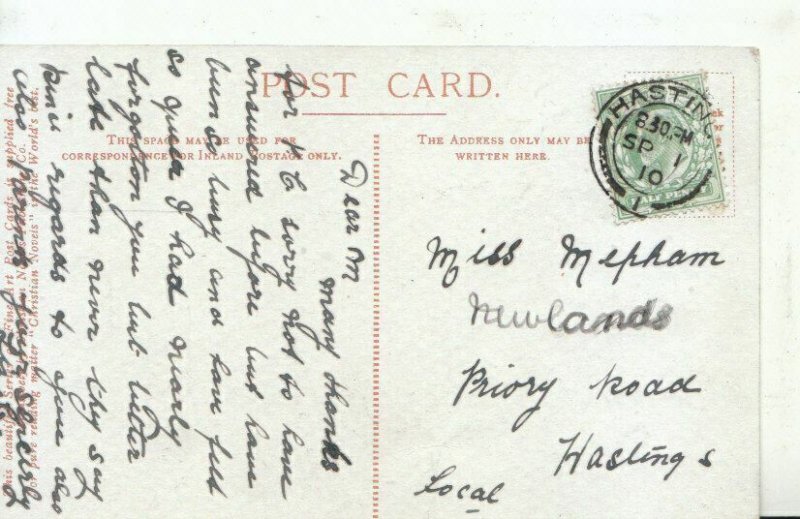 POST CARD.
THIS SPACE MAY BE USED FOR
CORRESPONDENCE FOR INLAND POSTAGE ONLY.
THE ADDRESS ONLY MAY BE
WRITTEN HERE.
HASTIN
8.30.PM
SP 1
10
1
HALF PENNY
Miss Mepham
Newlands
Priory Road
Hastings
Local
Dear M
many thanks
for P C sorry not to have
answered before but have
buns busy and have felt
so queer I had nearly
forgotton you but better
late than never they say
kind regards to you also
also yours sincerly
This beautiful Series of Fine Art Post Cards is supplied free
Co.
of pure reading matter "Christian Novels" is the World's best.